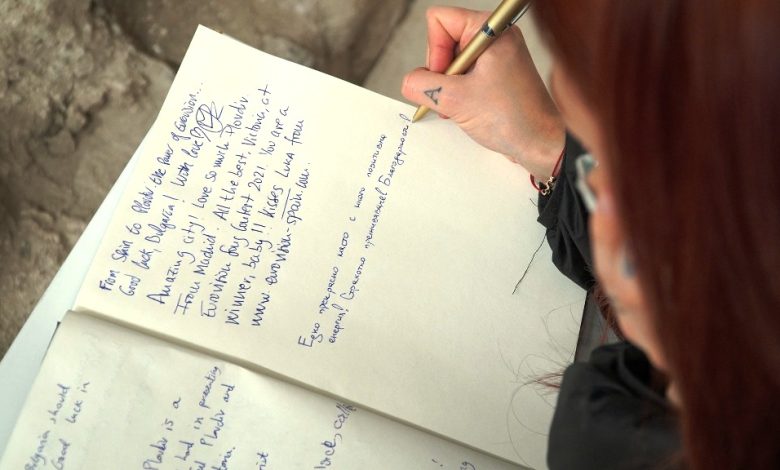 From Spain to Plovdiv the Power of Eurovision...
Good luck, Bulgaria! With love
Amazing city! Love so much Plovdiv
From Madrid. All the best, Victoria, at
Eurovision Song Contest 2021. You are a
winner, baby!! Kisses Luka from
www.eurovision-spain.com.
Едно прекрасно място с много позитивна
енергия! Страхотно преживяване! Благодарности!
A
Bulgaria should
Good luck in
Plovdiv is a
had in presenting
Plovdiv and